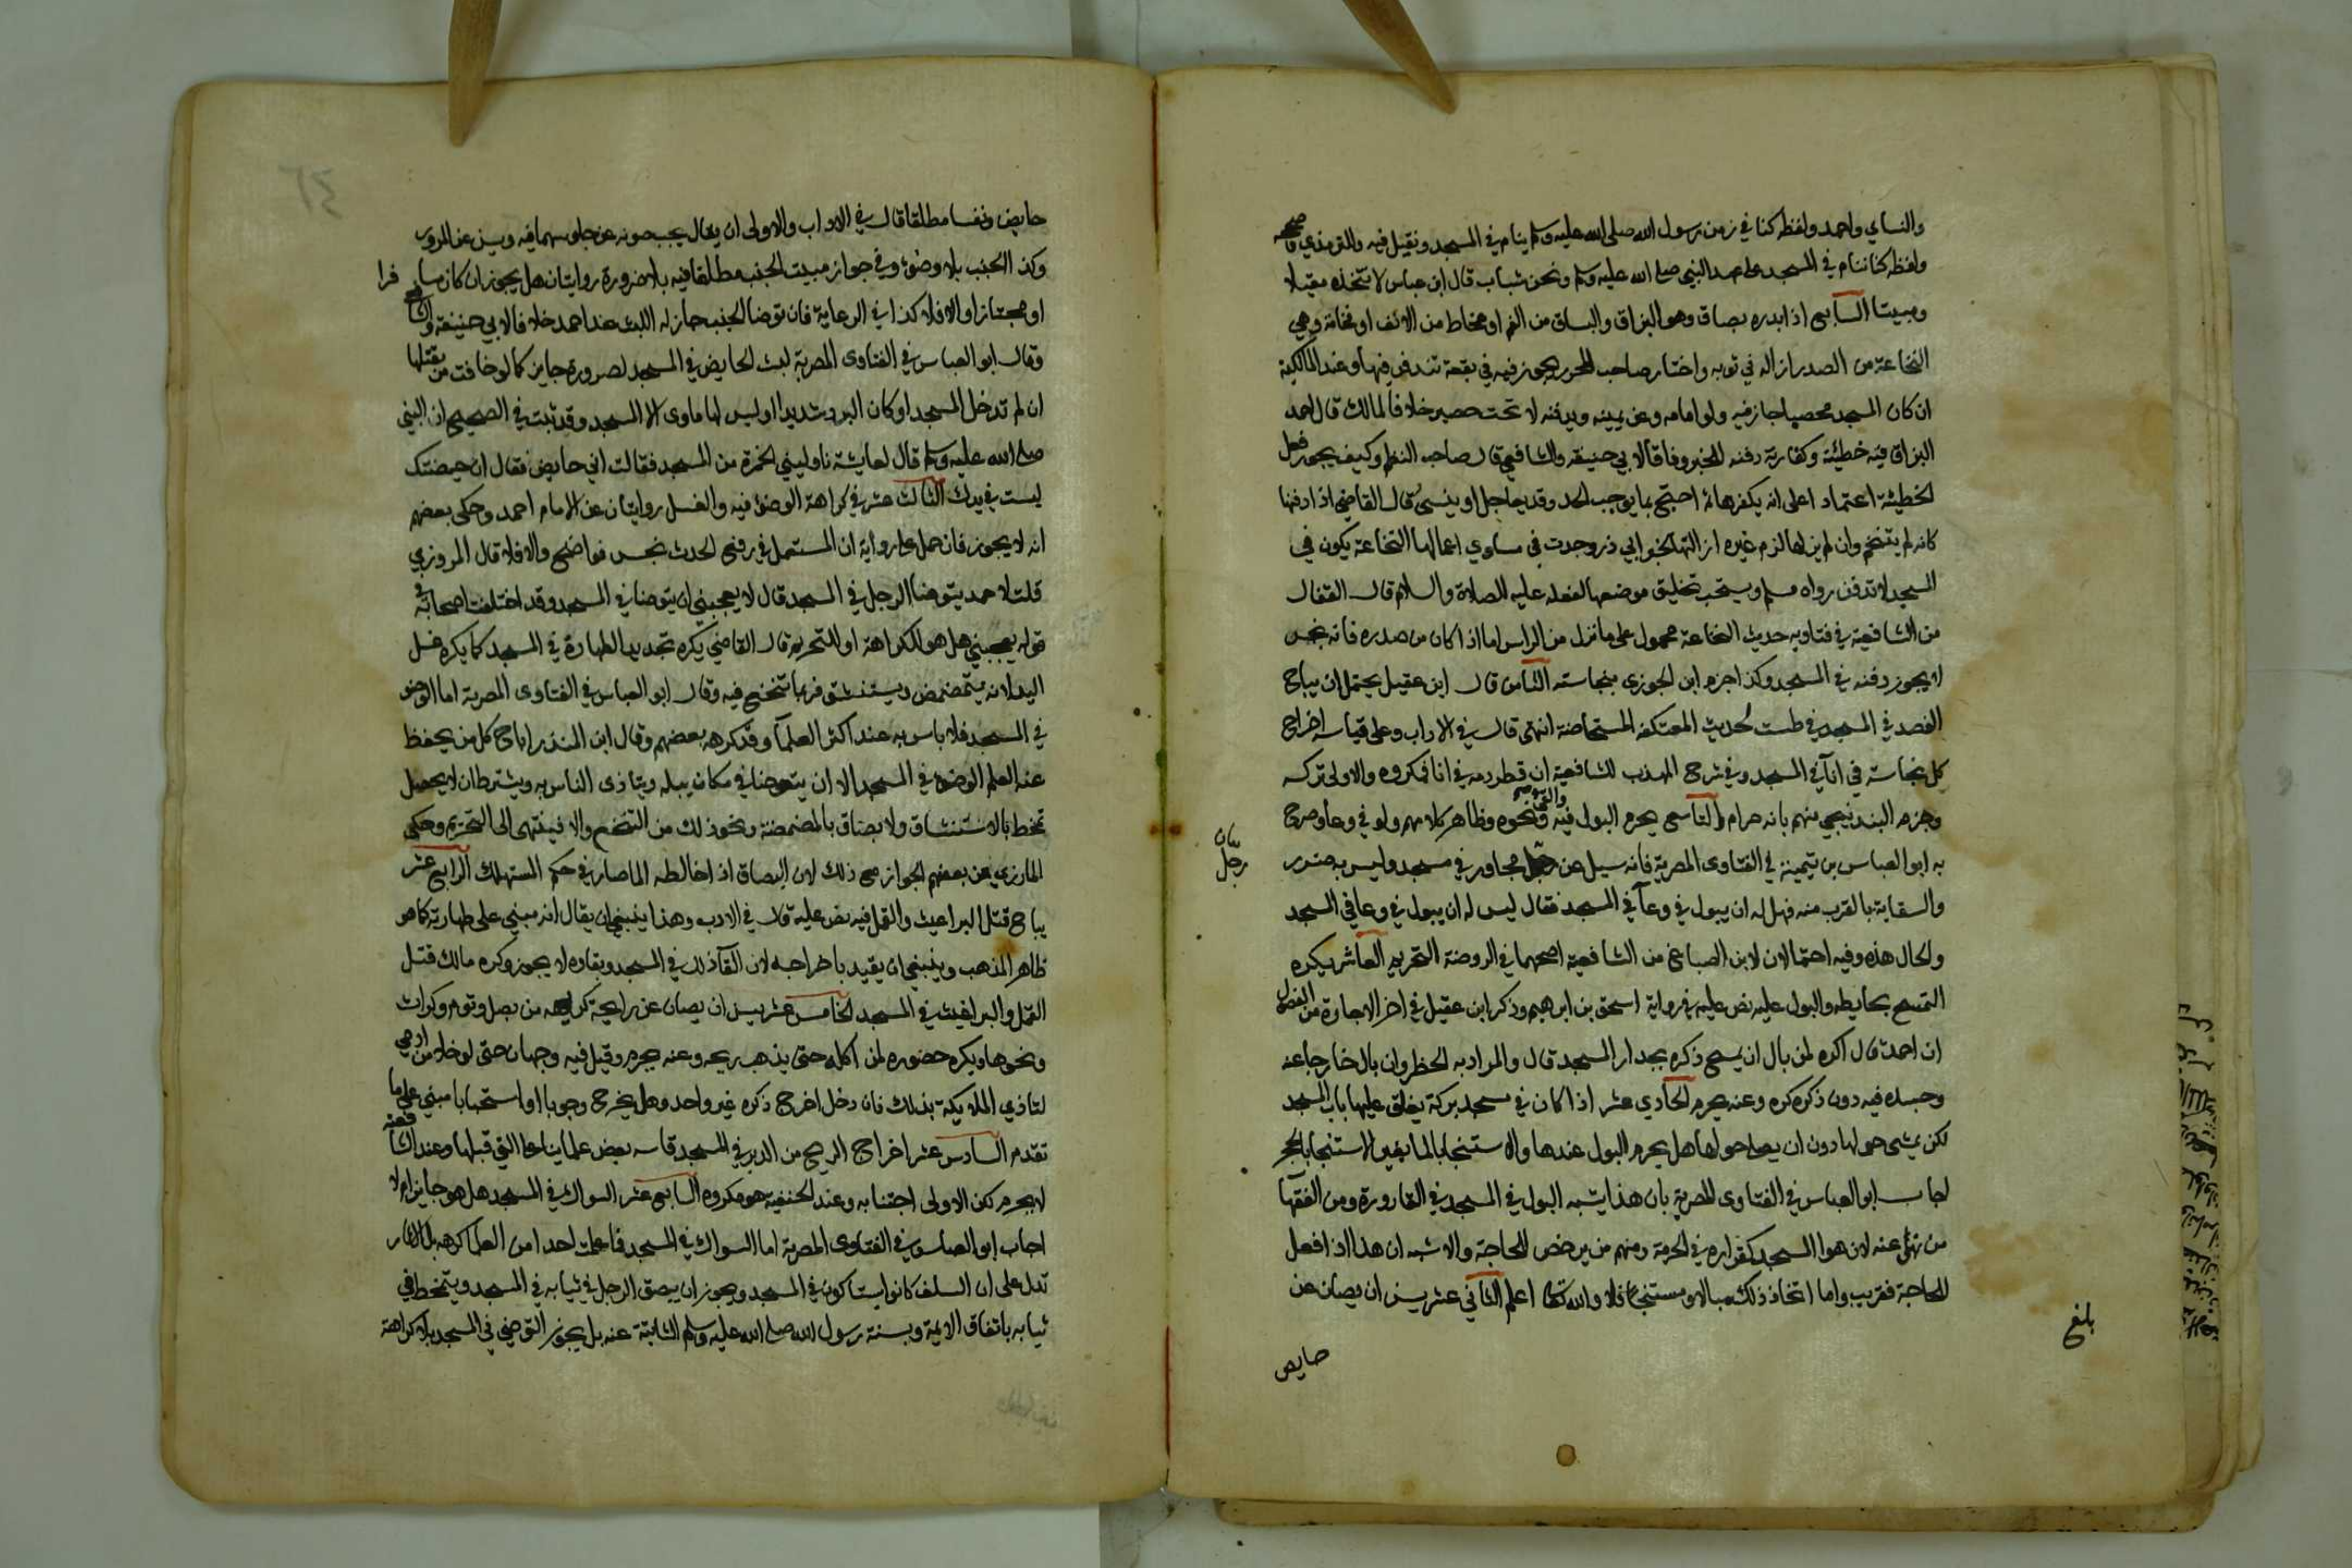 والنساي واحمد ولفظه كنا في زمن رسول الله صلى الله عليه وسلم ينام في المسجد ونقيل فيه وللترمذي وصححه
ولفظه كنا ننام في المسجد على عهد النبي صلى الله عليه وسلم ونحن شباب قال ابن عباس لا تتخذه مقيلا
ومبيتا السابع اذا بدره بصاق وهو البزاق والبساق من الفم او مخاط من الانف او نخامة وهي
النخاعة من الصدر ازاله في ثوبه واختار صاحب المحرر يجوز فيه في بقعة تندفن فيها وعند المالكية
ان كان المسجد محصبا جاز فيه ولو امامه وعن يمينه ويدفنه لا تحت حصير خلافا لمالك قال احمد
البزاق فيه خطئة وكفارته دفنه للخبر وفاقا لابي حنيفة والشافعي قال صاحب النظم وكيف يجوز فعل
الخطيئة اعتمادا على انه يكفرها احتج بما يوجب الحد وقد يعاجل او ينسى قال القاضي اذا دفنها
كانه لم يتنخم وان لم يزلها لزم غيره ازالتها لخبر ابي ذر وجدت في مساوي اعمالها النخاعة يكون في
المسجد لا تدفن رواه مسلم ويستحب تخليق موضعها لفعله عليه الصلاة والسلام قال القفال
من الشافعية في فتاويه حديث النخاعة محمول على ما نزل من الراس اما اذا كان من صدره فانه نجس
لا يجوز دفنه في المسجد وكذا جزم ابن الجوزي بنجاسته الثامن قال ابن عقيل يحتمل ان يباح
الفصد في المسجد في طست لحديث المعتكفة المستحاضة انتهى قال في الاداب وعلى قياسه اخراج
كل نجاسة في انآ في المسجد وفي شرح المهذب للشافعية ان قطر دمه في انا فمكروه والاولى تركه
وجزم البندنيجي منهم بانه حرام والتاسع يحرم البول فيه والقي ونحوه وظاهر كلامهم ولو في وعا وصرح
به ابو العباس بن تيمية في الفتاوى المصرية فانه سيل عن رجل مجاور في مسجد وليس به ضرر
بيان
رجل
والسقاية بالقرب منه فهل له ان يبول في وعآ في المسجد فقال ليس له ان يبول في وعا في المسجد
والحال هذه وفيه احتمالان لابن الصباغ من الشافعية اصحهما في الروضة التحريم العاشر يكره
التمسح بحايطه والبول عليه نص عليه في رواية اسحق بن ابرهيم وذكر ابن عقيل في اخر الاجارة من الفصول
ان احمد قال اكره لمن بال ان يمسح ذكره بجدار المسجد قال والمراد به الحظر وان بال خارجا عنه
وجسده فيه دون ذكره كره وعنه يحرم الحادي عشر اذا كان في مسجد بركة يغلق عليها باب المسجد
لكن يمشى حولها دون ان يصلى حولها هل يحرم البول عندها والاستنجا بالما بغير الاستنجا بالحجر
اجاب ابو العباس في الفتاوى المصرية بان هذا يشبه البول في المسجد في القارورة ومن الفقها
من نهى عنه لان هوا المسجد كقراره في الحرمة ومنهم من يرخص للحاجة والاشبه ان هذا اذا فعل
للحاجة فقريب واما اتخاذ ذلك مبالا ومستنجا فلا والله تعالى اعلم الثاني عشر يسن ان يصان عن
بلغ
حايض
حايض ونفسا مطلقا قال في الاداب والاولى ان يقال يجب صونه عن جلوسهما فيه ويسن عن المرور
وكذا الجنب بلا وضوء وفي جواز مبيت الجنب مطلقا فيه بلا ضرورة روايتان هل يجوز ان كان مسافرا
او مجتازا والا فلا كذا في الرعاية فان توضا الجنب جاز له اللبث عند احمد خلافا لابي حنيفة والشافعي
وقال ابو العباس في الفتاوى المصرية لبث الحايض في المسجد لضرورة جايز كما لو خافت من يقتلها
ان لم تدخل المسجد او كان البرد شديدا او ليس لها ماوى الا المسجد وقد ثبت في الصحيح ان النبي
صلى الله عليه وسلم قال لعايشة ناوليني الخمرة من المسجد فقالت اني حايض فقال ان حيضتك
ليست في يدك الثالث عشر في كراهة الوضوء فيه والغسل روايتان عن الامام احمد وحكى بعضهم
انه لا يجوز فان حمل على رواية ان المستعمل في رفع الحدث نجس فواضح والا فلا قال المروزي
قلت لاحمد يتوضا الرجل في المسجد قال لا يعجبني ان يتوضا في المسجد وقد اختلف اصحابه في
قوله يعجبني هل هو للكراهة او للتحريم قال القاضي يكره تجديد الطهارة في المسجد كما يكره غسل
اليد لانه يتمضمض ويستنشق فربما تنخع فيه وقال ابو العباس في الفتاوى المصرية اما الوضو
في المسجد فلا باس به عند اكثر العلمآ وقد كرهه بعضهم وقال ابن المنذر اباح كل من يحفظ
عنه العلم الوضوء في المسجد الا ان يتوضا في مكان يبله ويتاذى الناس به ويشترط ان لا يحصل
تمخط بالاستنشاق ولا بصاق بالمضمضة ونحو ذلك من التنخم والا فينتهى الى التحريم وحكى
المازري عن بعضهم الجواز مع ذلك لان البصاق اذا خالطه الما صار في حكم المستهلك الرابع عشر
يباح قتل البراغيث والقمل فيه نص عليه قال في الادب وهذا ينبغي ان يقال انه مبني على طهارته كما هو
ظاهر المذهب وينبغي ان يقيد باخراجه لان القآ ذلك في المسجد وبقاوه لا يجوز وكره مالك قتل
القمل والبراغيث في المسجد الخامس عشر يسن ان يصان عن رايحة كريهه من بصل وثوم وكراث
ونحوها ويكره حضوره لمن اكله حتى يذهب ريحه وعنه يحرم وقيل فيه وجهان حتى لو خلا من ادمي
لتاذي الملايكة بذلك فان دخل اخرج ذكره غير واحد وهل يخرج وجوبا او استحبابا مبني على ما
تقدم السادس عشر اخراج الريح من الدبر في المسجد قاسه بعض علماينا على التي قبلها وعند الشافعية
لا يحرم لكن الاولى اجتنابه وعند الحنفية هو مكروه السابع عشر السواك في المسجد هل هو جايز ام لا
اجاب ابو العباس في الفتاوى المصرية اما السواك في المسجد فما علمت احدا من العلما كرهه بل الاثار
تدل على ان السلف كانوا يستاكون في المسجد ويجوز ان يبصق الرجل في ثيابه في المسجد ويتمخط في
ثيابه باتفاق الايمة وبسنة رسول الله صلى الله عليه وسلم الثابتة عنه بل يجوز التوضي في المسجد بلا كراهة